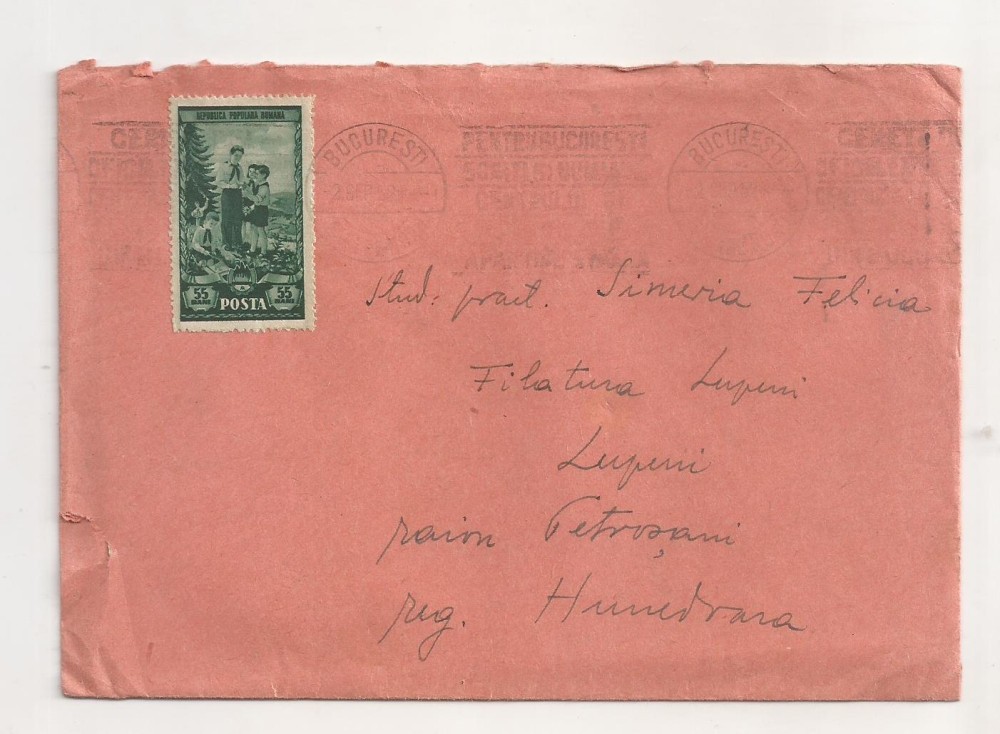 REPUBLICA POPULARA ROMANA
55 BANI POSTA 55 BANI
BUCUREȘTI
PENTRU BUCURESTI
BUCUREȘTI
Stud: pract. Simeria Felicia
Filatura Lupeni
Lupeni
raion Petroșani
reg. Hunedoara